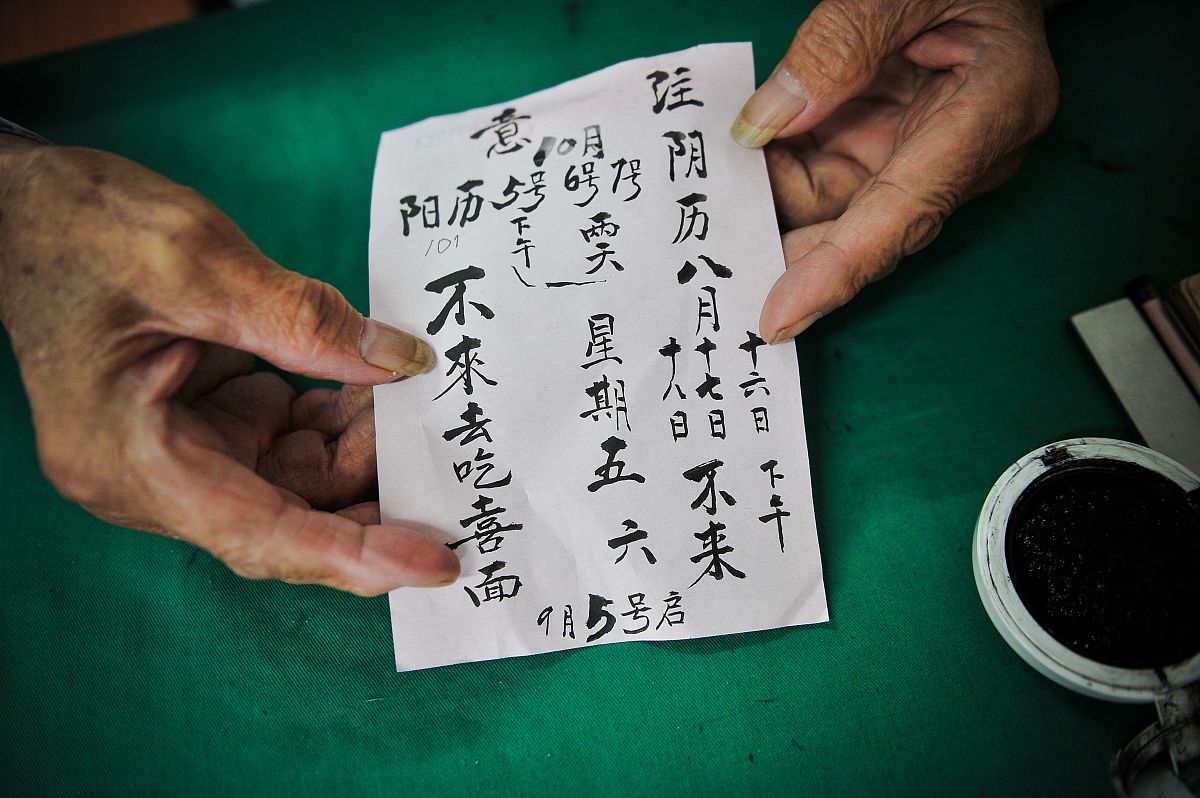 注
意
阴历八月
十六日下午
十七日
十八日
不来
10月
阳历5号 6号 7号
下午
两天
101
星期五六
不來去吃喜面
9月5号启